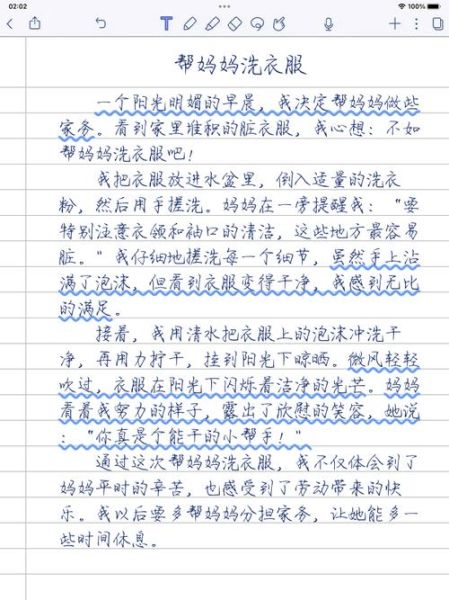 02:02
100%
帮妈妈洗衣服
一个阳光明媚的早晨，我决定帮妈妈做些
家务。看到家里堆积的脏衣服，我心想：不如
帮妈妈洗衣服吧！
我把衣服放进水盆里，倒入适量的洗衣
粉，然后用手搓洗。妈妈在一旁提醒我：“要
特别注意衣领和袖口的清洁，这些地方最容易
脏。”我仔细地搓洗每一个细节，虽然手上沾
满了泡沫，但看到衣服变得干净，我感到无比
的满足。
接着，我用清水把衣服上的泡沫冲洗干
净，再用力拧干，挂到阳光下晾晒。微风轻轻
吹过，衣服在阳光下闪烁着洁净的光芒。妈妈
看着我努力的样子，露出了欣慰的笑容，她说
：“你真是个能干的小帮手！”
通过这次帮妈妈洗衣服，我不仅体会到了
妈妈平时的辛苦，也感受到了劳动带来的快
乐。我以后要多帮妈妈分担家务，让她能多一
些时间休息。